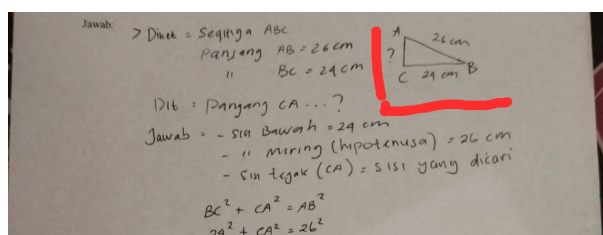 Jawab:
> Diket = Segitiga ABC
Panjang AB = 26 cm
" BC = 24 cm
A
26 cm
?
C 24 cm B
Dit : Panjang CA ... ?
Jawab = - Sisi Bawah = 24 cm
- " Miring (hipotenusa) = 26 cm
- Sisi tegak (CA) = sisi yang dicari
BC² + CA² = AB²
24² + CA² = 26²